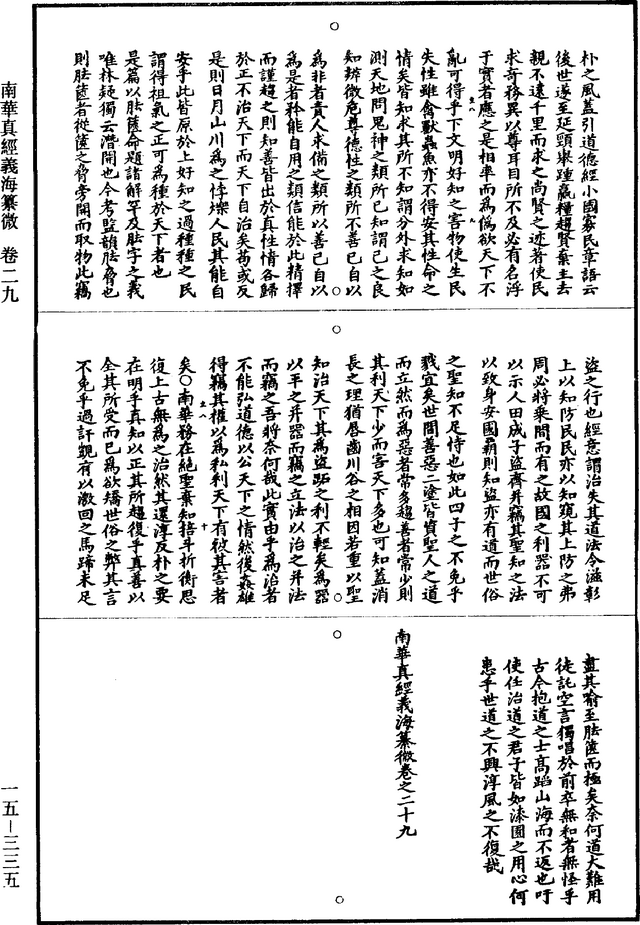 南華真經義海纂微 卷二九
一五—三三五
朴之風蓋引道德經小國寡民章語云
後世遂至延頸舉踵贏糧趨賢棄主去
親不遠千里而求之尚賢之迹著使民
求奇務異以尊耳目所不及必有名浮
于實者應之是相率而為偽欲天下不
亂可得乎下文明好知之害物使生民
失性雖禽獸蟲魚亦不得安其性命之
情矣皆知求其所不知謂分外求知如
測天地問鬼神之類所已知謂己之良
知辨微危尊德性之類所不善已自以
為非者責人求備之類所以善已自以
為是者矜能自用之類信能於此精擇
而謹趨之則知善皆出於真性情各歸
於正不治天下而天下自治矣苟或反
是則日月山川為之悖爍人民其能自
安乎此皆原於上好知之過種種之民
謂得祖氣之正可為種於天下者也
是篇以胠篋命題諸解罕及胠字之義
唯林疑獨云潛開也今考監韻胠脅也
則胠篋者從篋之脅旁開而取物此竊
盜之行也經意謂治失其道法令滋彰
上以知防民民亦以知窺其上防之弗
周必將乘間而有之故國之利器不可
以示人田成子盜齊并竊其聖知之法
以致身安國霸則知盜亦有道而世俗
之聖知不足恃也如此四子之不免乎
戮宜矣世間善惡二塗皆資聖人之道
而立然而為惡者常多趨善者常少則
其利天下少而害天下多也可知蓋消
長之理猶唇齒川谷之相因若重以聖
知治天下其為盜跖之利不輕矣為器
以平之并器而竊之立法以治之并法
而竊之吾將奈何哉此實由乎為治者
不能弘道德以公天下之情然後姦雄
得竊其權以為私利天下有被其害者
矣○南華務在絕聖棄知掊斗折衡思
復上古無為之治然其還淳反朴之要
在明乎真知以正其所趨復乎真善以
全其所受而已為欲矯世俗之弊其言
不免乎過訐觀有以激回之馬蹄未足
盡其喻至胠篋而極矣奈何道大難用
徒託空言獨唱於前卒無和者無怪乎
古今抱道之士高蹈山海而不返也吁
使任治道之君子皆如漆園之用心何
患乎世道之不興淳風之不復哉
南華真經義海纂微卷之二十九